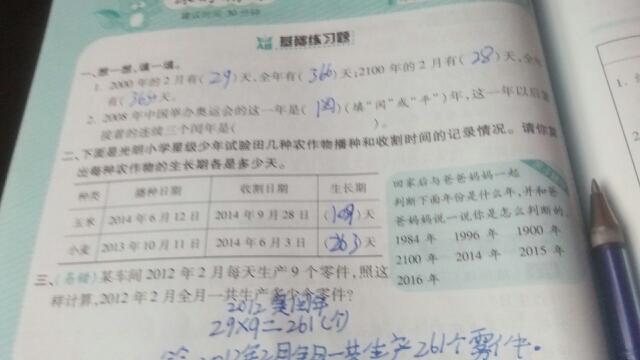 建议时间 30分钟
基础练习题
一、想一想,填一填。
1. 2000 年的 2 月有( 29 )天,全年有( 366 )天;2100 年的 2 月有( 28 )天,全年
有( 365 )天。
2. 2008 年中国举办奥运会的这一年是( 闰 )(填“闰”或“平”)年,这一年以后
接着的连续三个闰年是( )。
二、下面是光明小学星级少年试验田几种农作物播种和收割时间的记录情况。请你算
出每种农作物的生长期各是多少天。
种类 播种日期 收割日期 生长期
玉米 2014 年 6 月 12 日 2014 年 9 月 28 日 (109)天
小麦 2013 年 10 月 11 日 2014 年 6 月 3 日 (263)天
回家后与爸爸妈妈一起
判断下面年份是什么年,并和爸
爸妈妈说一说你是怎么判断的。
1984 年 1996 年 1900 年
2100 年 2014 年 2015 年
2016 年
三、(易错)某车间 2012 年 2 月每天生产 9 个零件,照这
样计算,2012 年 2 月全月一共生产多少个零件?
2012 是闰年
29×9=261(个)
答:2012年2月全月一共生产261个零件。